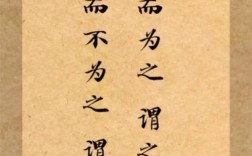 而为之 谓之
而不为之 谓